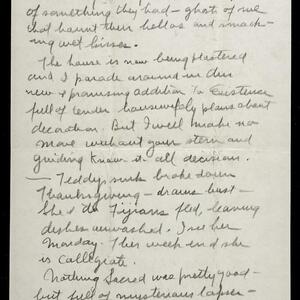 of something they had – ghosts of me
that haunt their hellos and smack-
ing wet kisses.
The house is now being plastered
and I parade around in this
new & promising addition to existence
full of tender housewifely plans about
decoration. But I will make no
move without your stern and
guiding know it-all decision.
— Teddy's sink broke down
Thanksgiving – drains bust –
She & the Fijians fled, leaving
dishes unwashed. I see her
Monday. This week end she
is collegiate.
Nothing Sacred was pretty good –
but full of mysterious lapses –